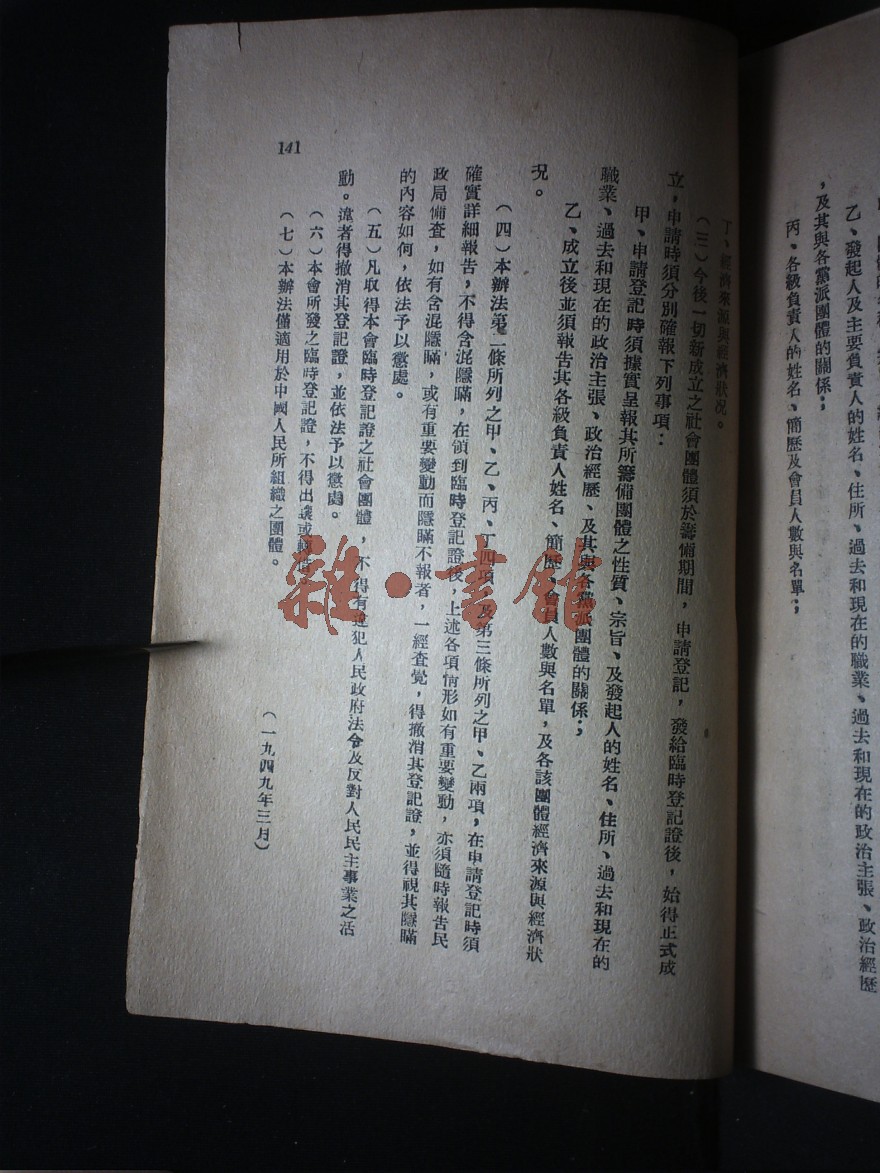 乙、發起人及主要負責人的姓名、住所、過去和現在的職業、過去和現在的政治主張、政治經歷
，及其與各黨派團體的關係；
丙、各級負責人的姓名、簡歷及會員人數與名單；
丁、經濟來源與經濟狀况。
（三）今後一切新成立之社會團體須於籌備期間，申請登記，發給臨時登記證後，始得正式成
立，申請時須分別確報下列事項：
甲、申請登記時須據實呈報其所籌備團體之性質、宗旨、及發起人的姓名、住所、過去和現在的
職業、過去和現在的政治主張、政治經歷、及其與各黨派團體的關係；
乙、成立後並須報告其各級負責人姓名、簡歷、會員人數與名單，及各該團體經濟來源與經濟狀
况。
（四）本辦法第二條所列之甲、乙、丙、丁四項，及第三條所列之甲、乙兩項，在申請登記時須
確實詳細報告，不得含混隱瞞，在領到臨時登記證後，上述各項情形如有重要變動，亦須隨時報告民
政局備查，如有含混隱瞞，或有重要變動而隱瞞不報者，一經查覺，得撤消其登記證，並得視其隱瞞
的內容如何，依法予以懲處。
（五）凡取得本會臨時登記證之社會團體，不得有違犯人民政府法令及反對人民民主事業之活
動。違者得撤消其登記證，並依法予以懲處。
（六）本會所發之臨時登記證，不得出讓或轉借。
（七）本辦法僅適用於中國人民所組織之團體。
（一九四九年三月）
141
雜·書館